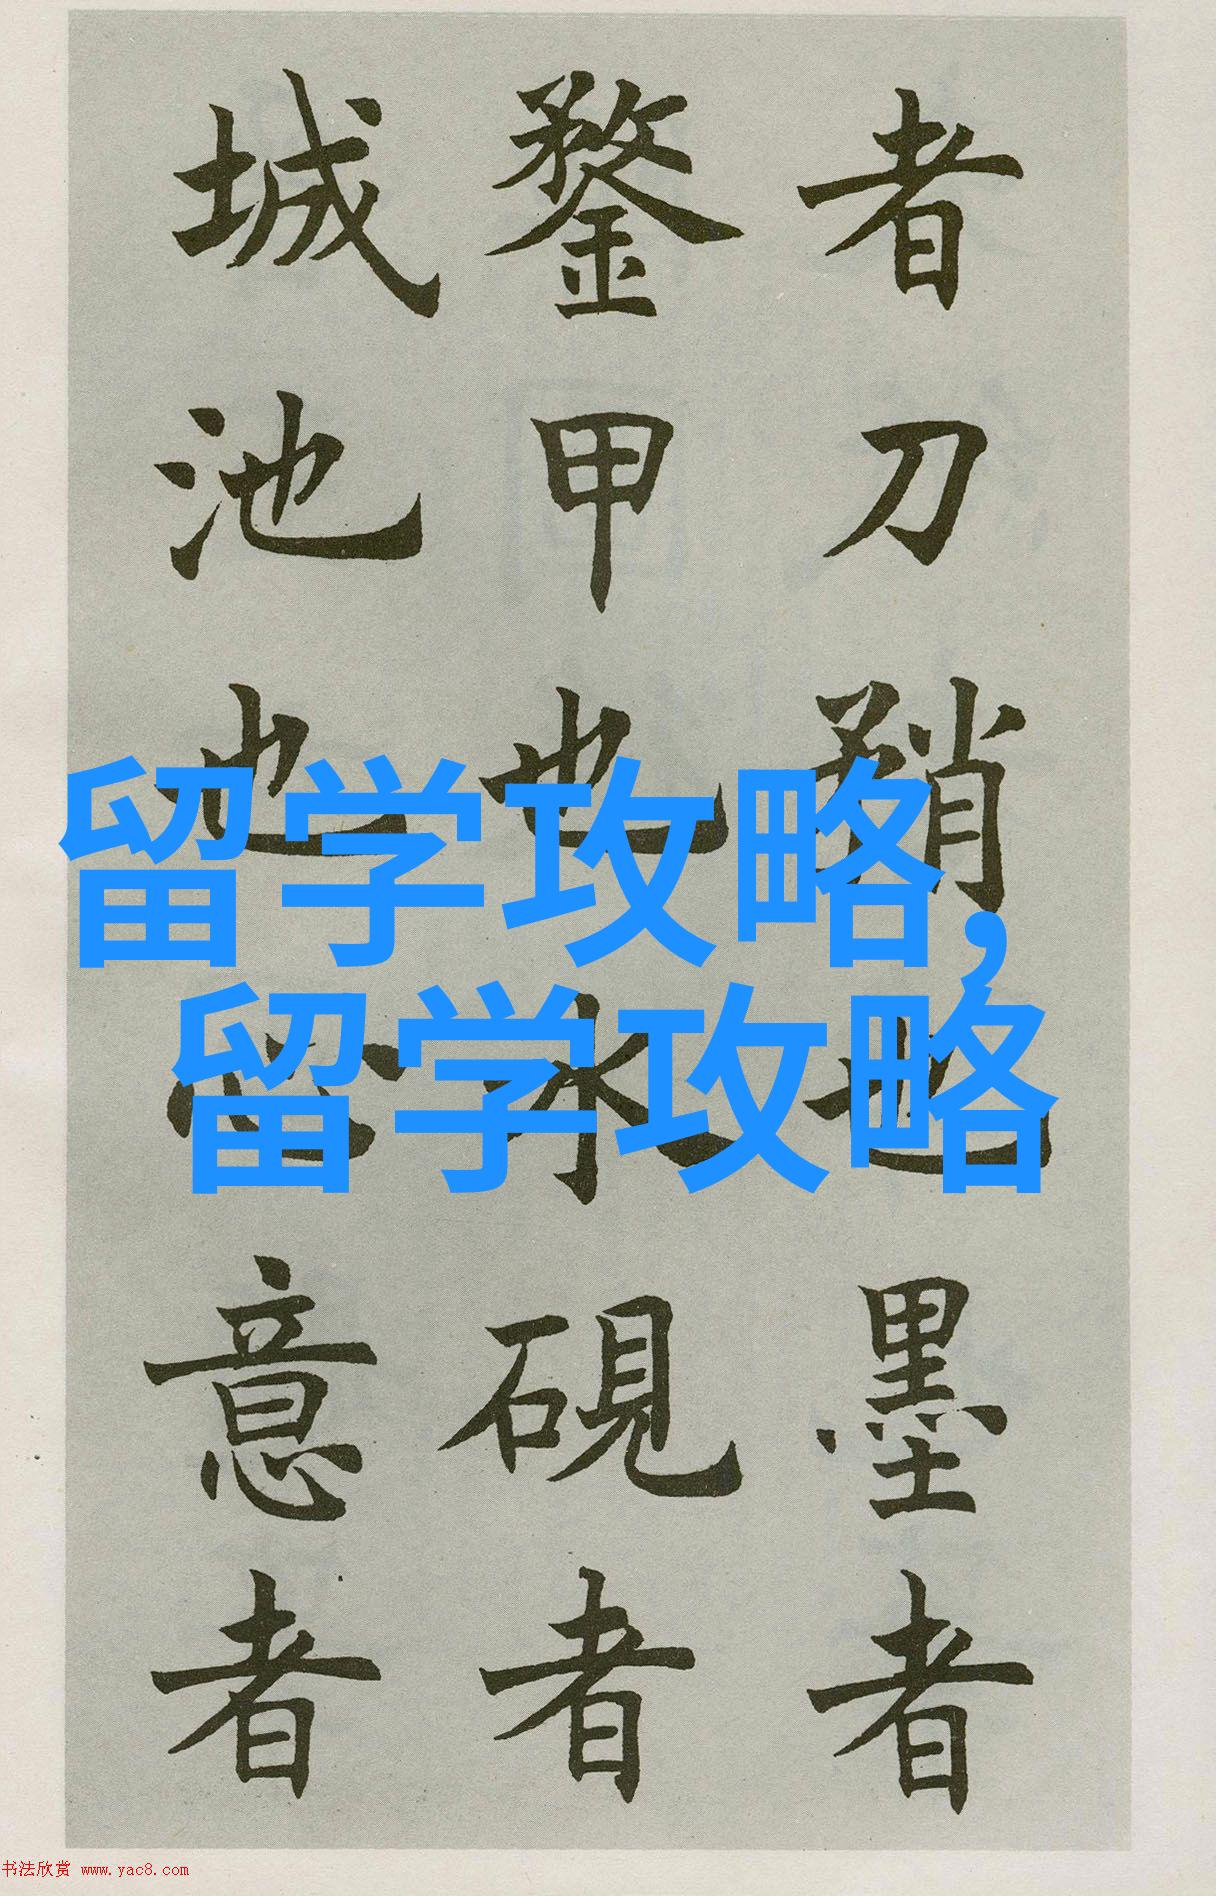 者刀矟也墨者
鍪甲也水硯者
城池也心意者
留学攻略,
留学攻略
书法欣赏 www.yac8.com